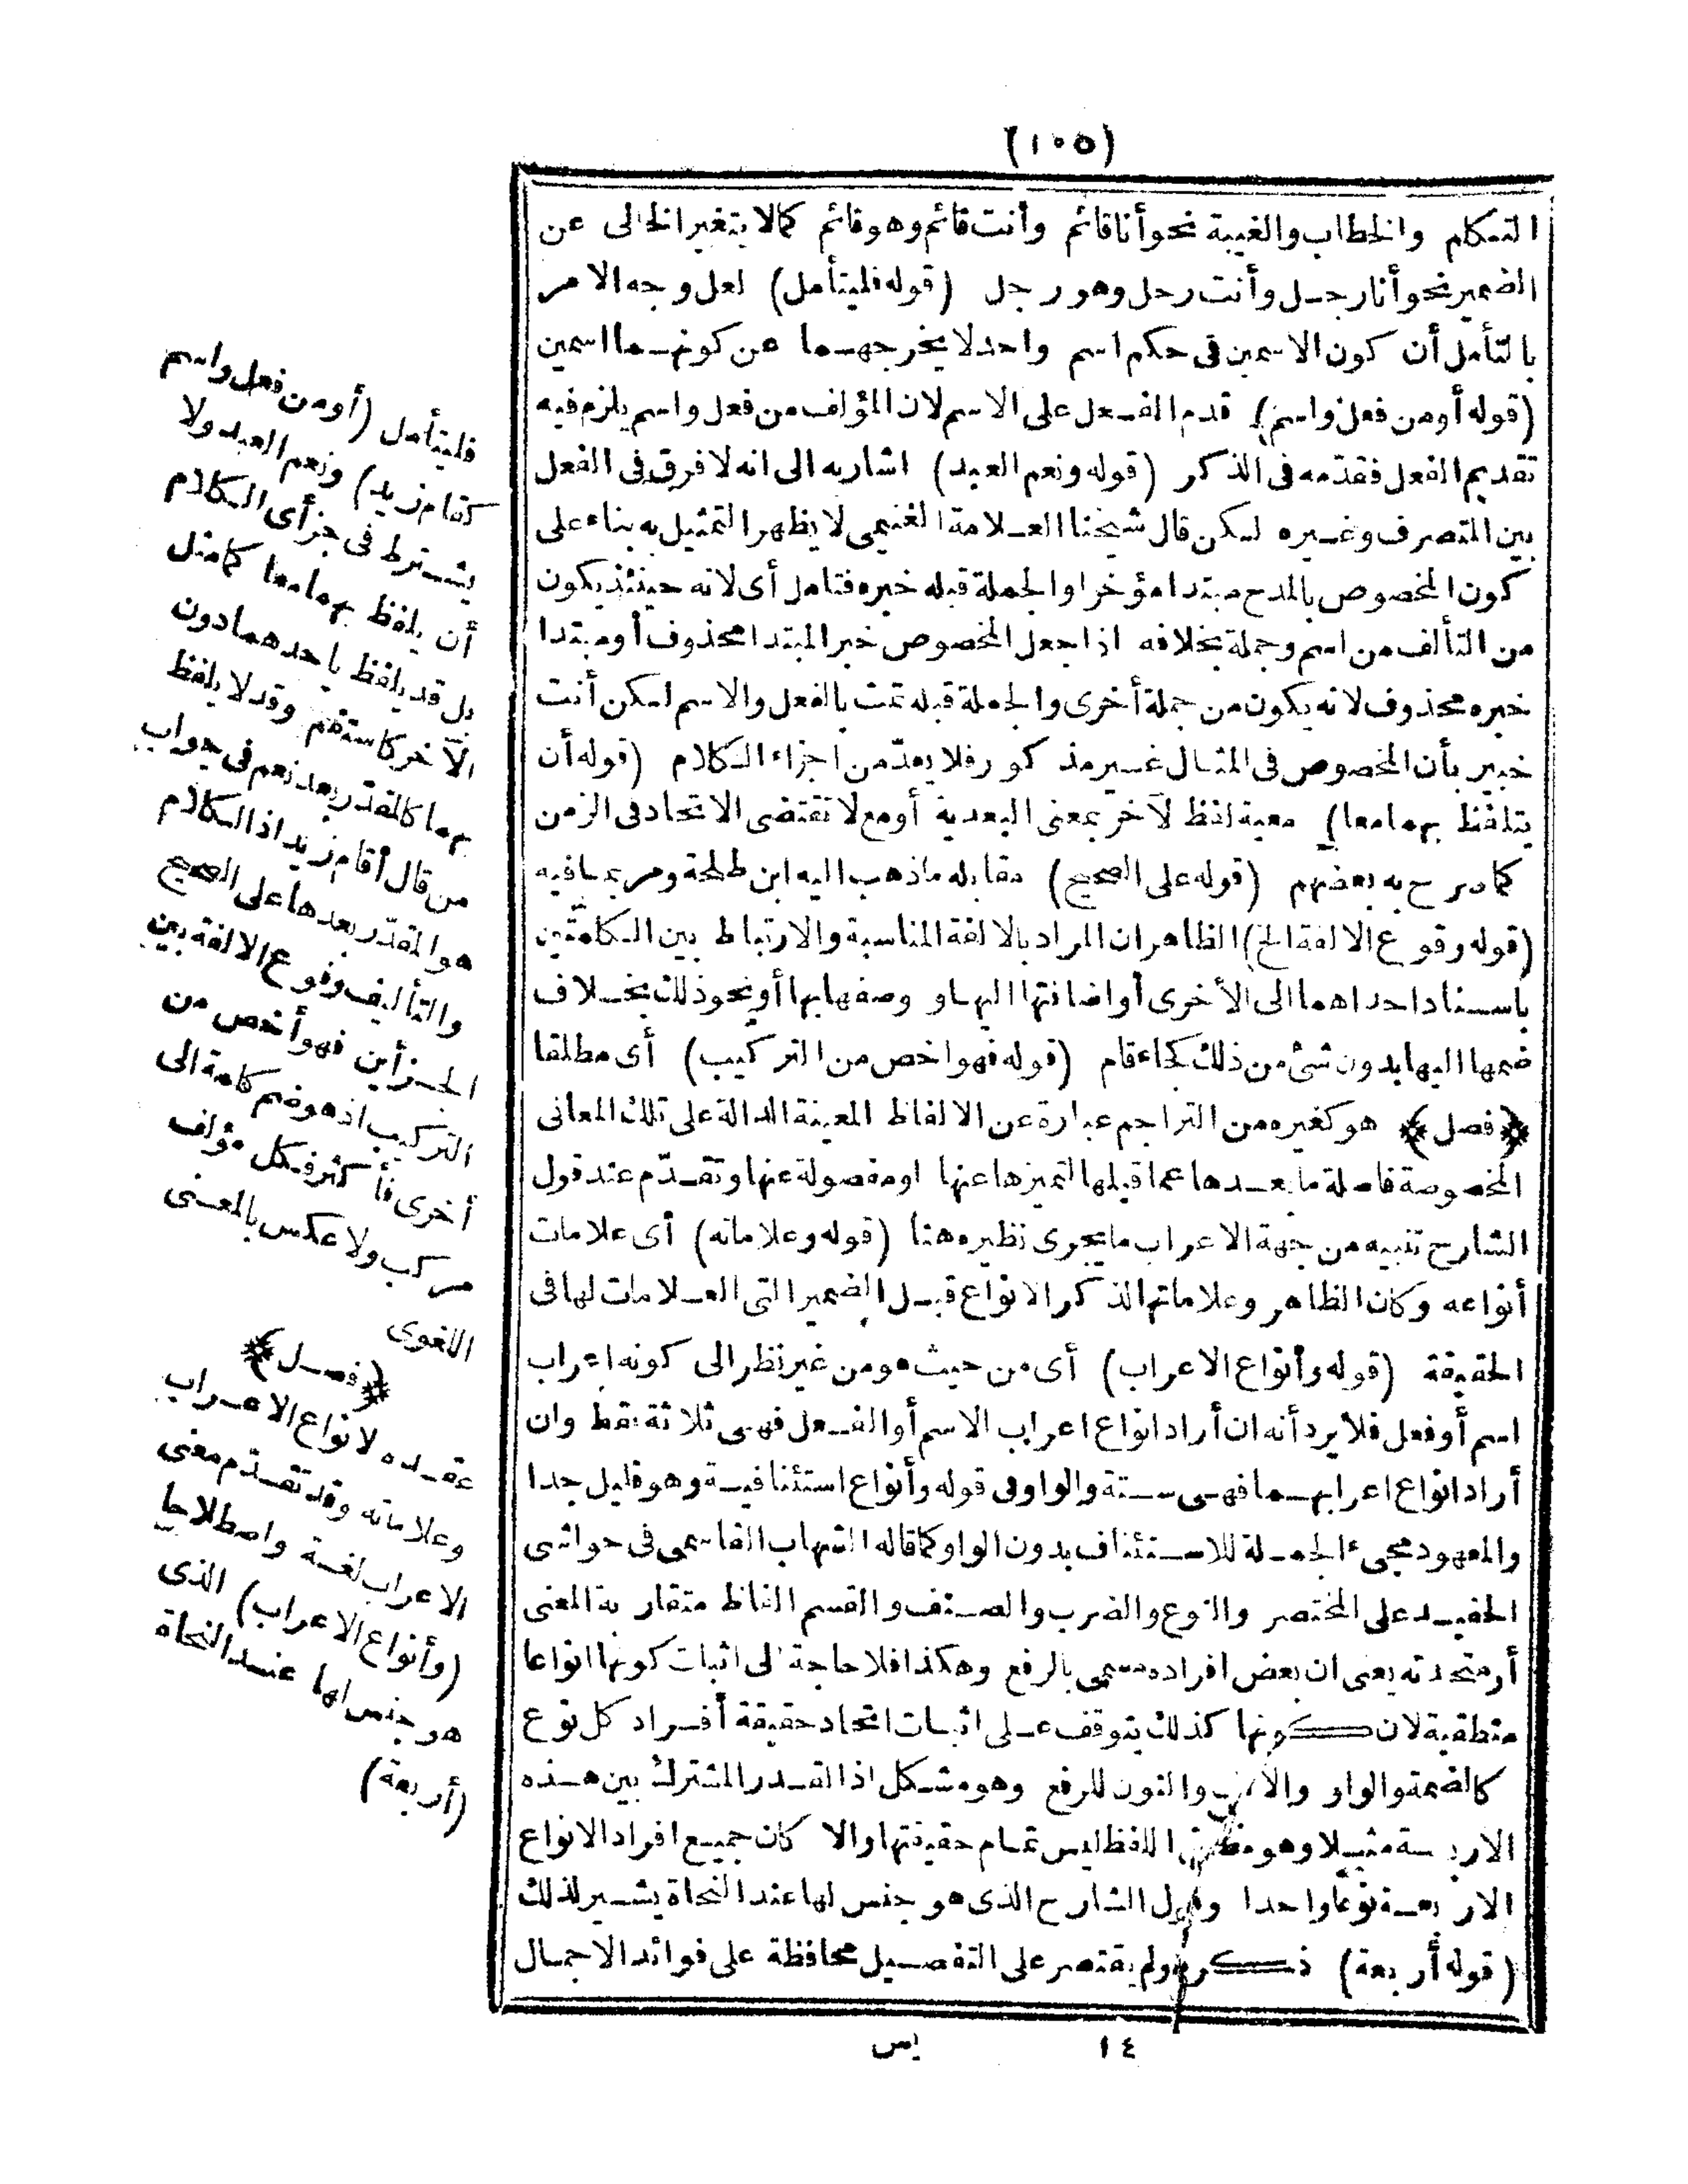 (١٠٥)
التكلم والخطاب والغيبة نحو أنا قائم وأنت قائم وهو قائم كما لا يتغير الخالى عن
الضمير نحو أنا رجل وأنت رجل وهو رجل (قوله فليتأمل) لعل وجه الامر
بالتأمل أن كون الاسمين فى حكم اسم واحد لا يخرجهما عن كونهما اسمين
(قوله أو من فعل واسم) قدم الفعل على الاسم لان المؤلف من فعل واسم يلزم فيه
تقديم الفعل فقدّمه فى الذكر (قوله ونعم العبد) اشار به الى انه لا فرق فى الفعل
بين المتصرف وغيره لكن قال شيخنا العلامة الغنيمى لا يظهر التمثيل به بناء على
كون المخصوص بالمدح مبتدا مؤخرا والجملة قبله خبره فتامل أى لانه حينئذ يكون
من التألف من اسم وجملة بخلافه اذا جعل المخصوص خبر المبتدا محذوف أو مبتدا
خبره محذوف لانه يكون من جملة أخرى والجملة قبله تمت بالفعل والاسم لكن أنت
خبير بأن المخصوص فى المثال غير مذكور فلا يعدّ من اجزاء الكلام (قوله أن
يتلفظ بهما معا) معية لفظ لآخر بمعنى البعدية أو مع لا تقتضى الاتحاد فى الزمن
كما صرح به بعضهم (قوله على الصحيح) مقابله ما ذهب اليه ابن طلحة ومر بما فيه
(قوله وقوع الالفة الخ) الظاهر ان المراد بالالفة المناسبة والارتباط بين الكلمتين
باسناد احداهما الى الأخرى أو اضافتها اليها و وصفها بها أو نحو ذلك بخلاف
ضمها اليها بدون شئ من ذلك كجاء قام (قوله فهو اخص من التركيب) أى مطلقا
﴿فصل﴾ هو كغيره من التراجم عبارة عن الالفاظ المعينة الدالة على تلك المعانى
المخصوصة فاصلة ما بعدها عما قبلها لتميزها عنها او مفصولة عنها وتقدّم عند قول
الشارح تنبيه من جهة الاعراب ما يجرى نظيره هنا (قوله وعلاماته) أى علامات
أنواعه وكان الظاهر وعلاماتها لذكر الانواع قبل الضمير التى العلامات لها فى
الحقيقة (قوله وأنواع الاعراب) أى من حيث هو من غير نظر الى كونه اعراب
اسم أو فعل فلا يرد أنه ان أراد انواع اعراب الاسم أو الفعل فهى ثلاثة فقط وان
أراد انواع اعرابهما فهى ستة والواو فى قوله وأنواع استئنافية وهو قليل جدا
والمعهود مجىء الجملة للاستئناف بدون الواو كما قاله الشهاب القاسمى فى حواشى
الحفيد على المختصر والنوع والضرب والصنف والقسم الفاظ متقاربة المعنى
أو متحدته يعنى ان بعض افراده مسمى بالرفع وهكذا فلا حاجة الى اثبات كونها انواعا
منطقية لان كونها كذلك يتوقف على اثبات اتحاد حقيقة أفراد كل نوع
كالضمة والواو والالف والنون للرفع وهو مشكل اذ القدر المشترك بين هذه
الاربعة مثلا وهو اللفظ ليس تمام حقيقتها والا كان جميع افراد الانواع
الاربعة نوعا واحدا وقول الشارح الذى هو جنس لها عند النحاة يشير لذلك
(قوله أربعة) ذكره ولم يقتصر على التفصيل محافظة على فوائد الاجمال
١٤ يس
فليتأمل (أو من فعل واسم
كقام زيد) ونعم العبد ولا
يشترط فى جزأى الكلام
أن يلفظ بهما معا كما مثل
بل قد يلفظ باحدهما دون
الآخر كاستقم وقد لا يلفظ
بهما كالمقدّر بعد نعم فى جواب
من قال أقام زيد اذ الكلام
هو المقدّر بعدها على الصحيح
والتأليف وقوع الالفة بين
الجزأين فهو أخص من
التركيب اذ هو ضم كلمة الى
أخرى فأكثر فكل مؤلف
مركب ولا عكس بالمعنى
اللغوى
﴿فصل﴾
عقده لانواع الاعراب
وعلاماته وقد تقدّم معنى
الاعراب لغة واصطلاحا
(وأنواع الاعراب) الذى
هو جنس لها عند النحاة
(أربعة)